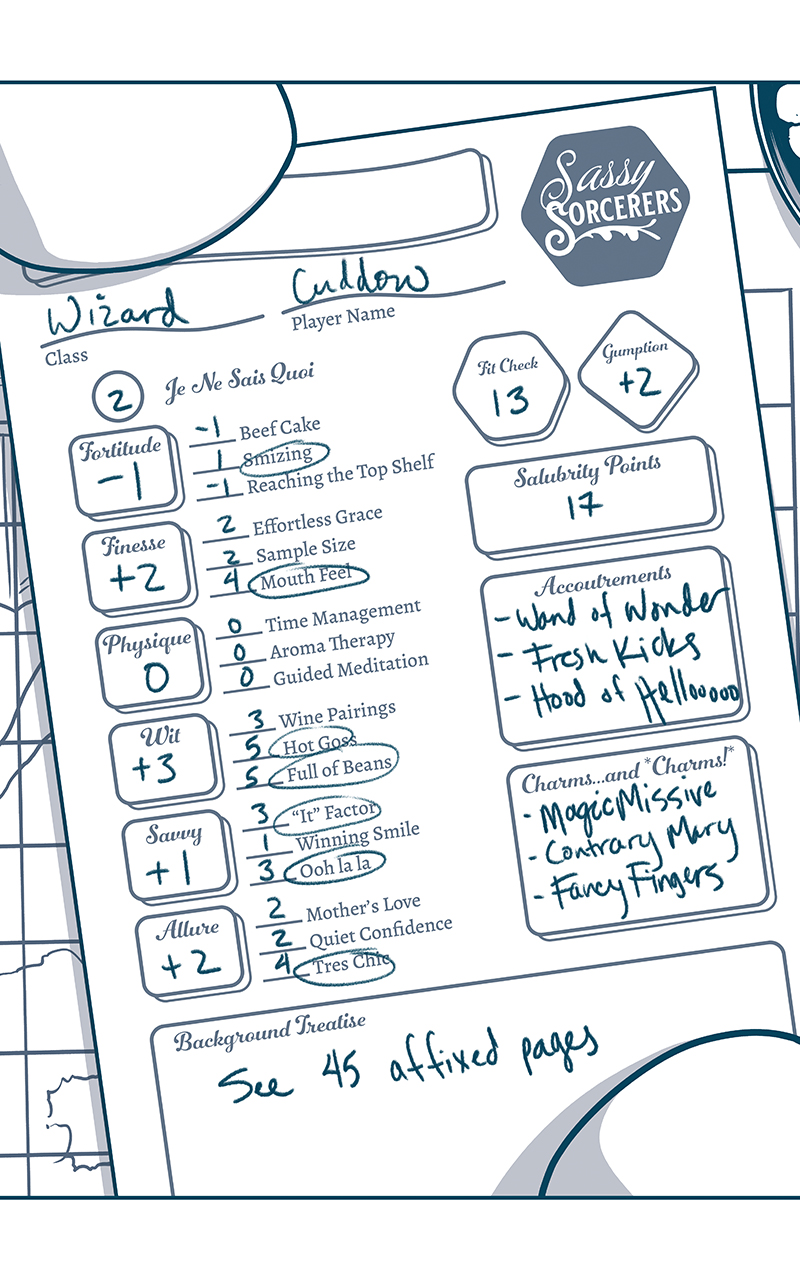 Sassy
Sorcerers
Wizard
Class
Cuddow
Player Name
2 Je Ne Sais Quoi
Fit Check
13
Gumption
+2
Fortitude
-1
-1 Beef Cake
1 Smizing
-1 Reaching the Top Shelf
Finesse
+2
2 Effortless Grace
2 Sample Size
4 Mouth Feel
Physique
0
0 Time Management
0 Aroma Therapy
0 Guided Meditation
Wit
+3
3 Wine Pairings
5 Hot Goss
5 Full of Beans
Savvy
+1
3 “It” Factor
1 Winning Smile
3 Ooh la la
Allure
+2
2 Mother’s Love
2 Quiet Confidence
4 Tres Chic
Salubrity Points
17
Accoutrements
- Wand of Wonder
- Fresh Kicks
- Hood of Hellooooo
Charms...and *Charms!*
- Magic Missive
- Contrary Mary
- Fancy Fingers
Background Treatise
See 45 affixed pages